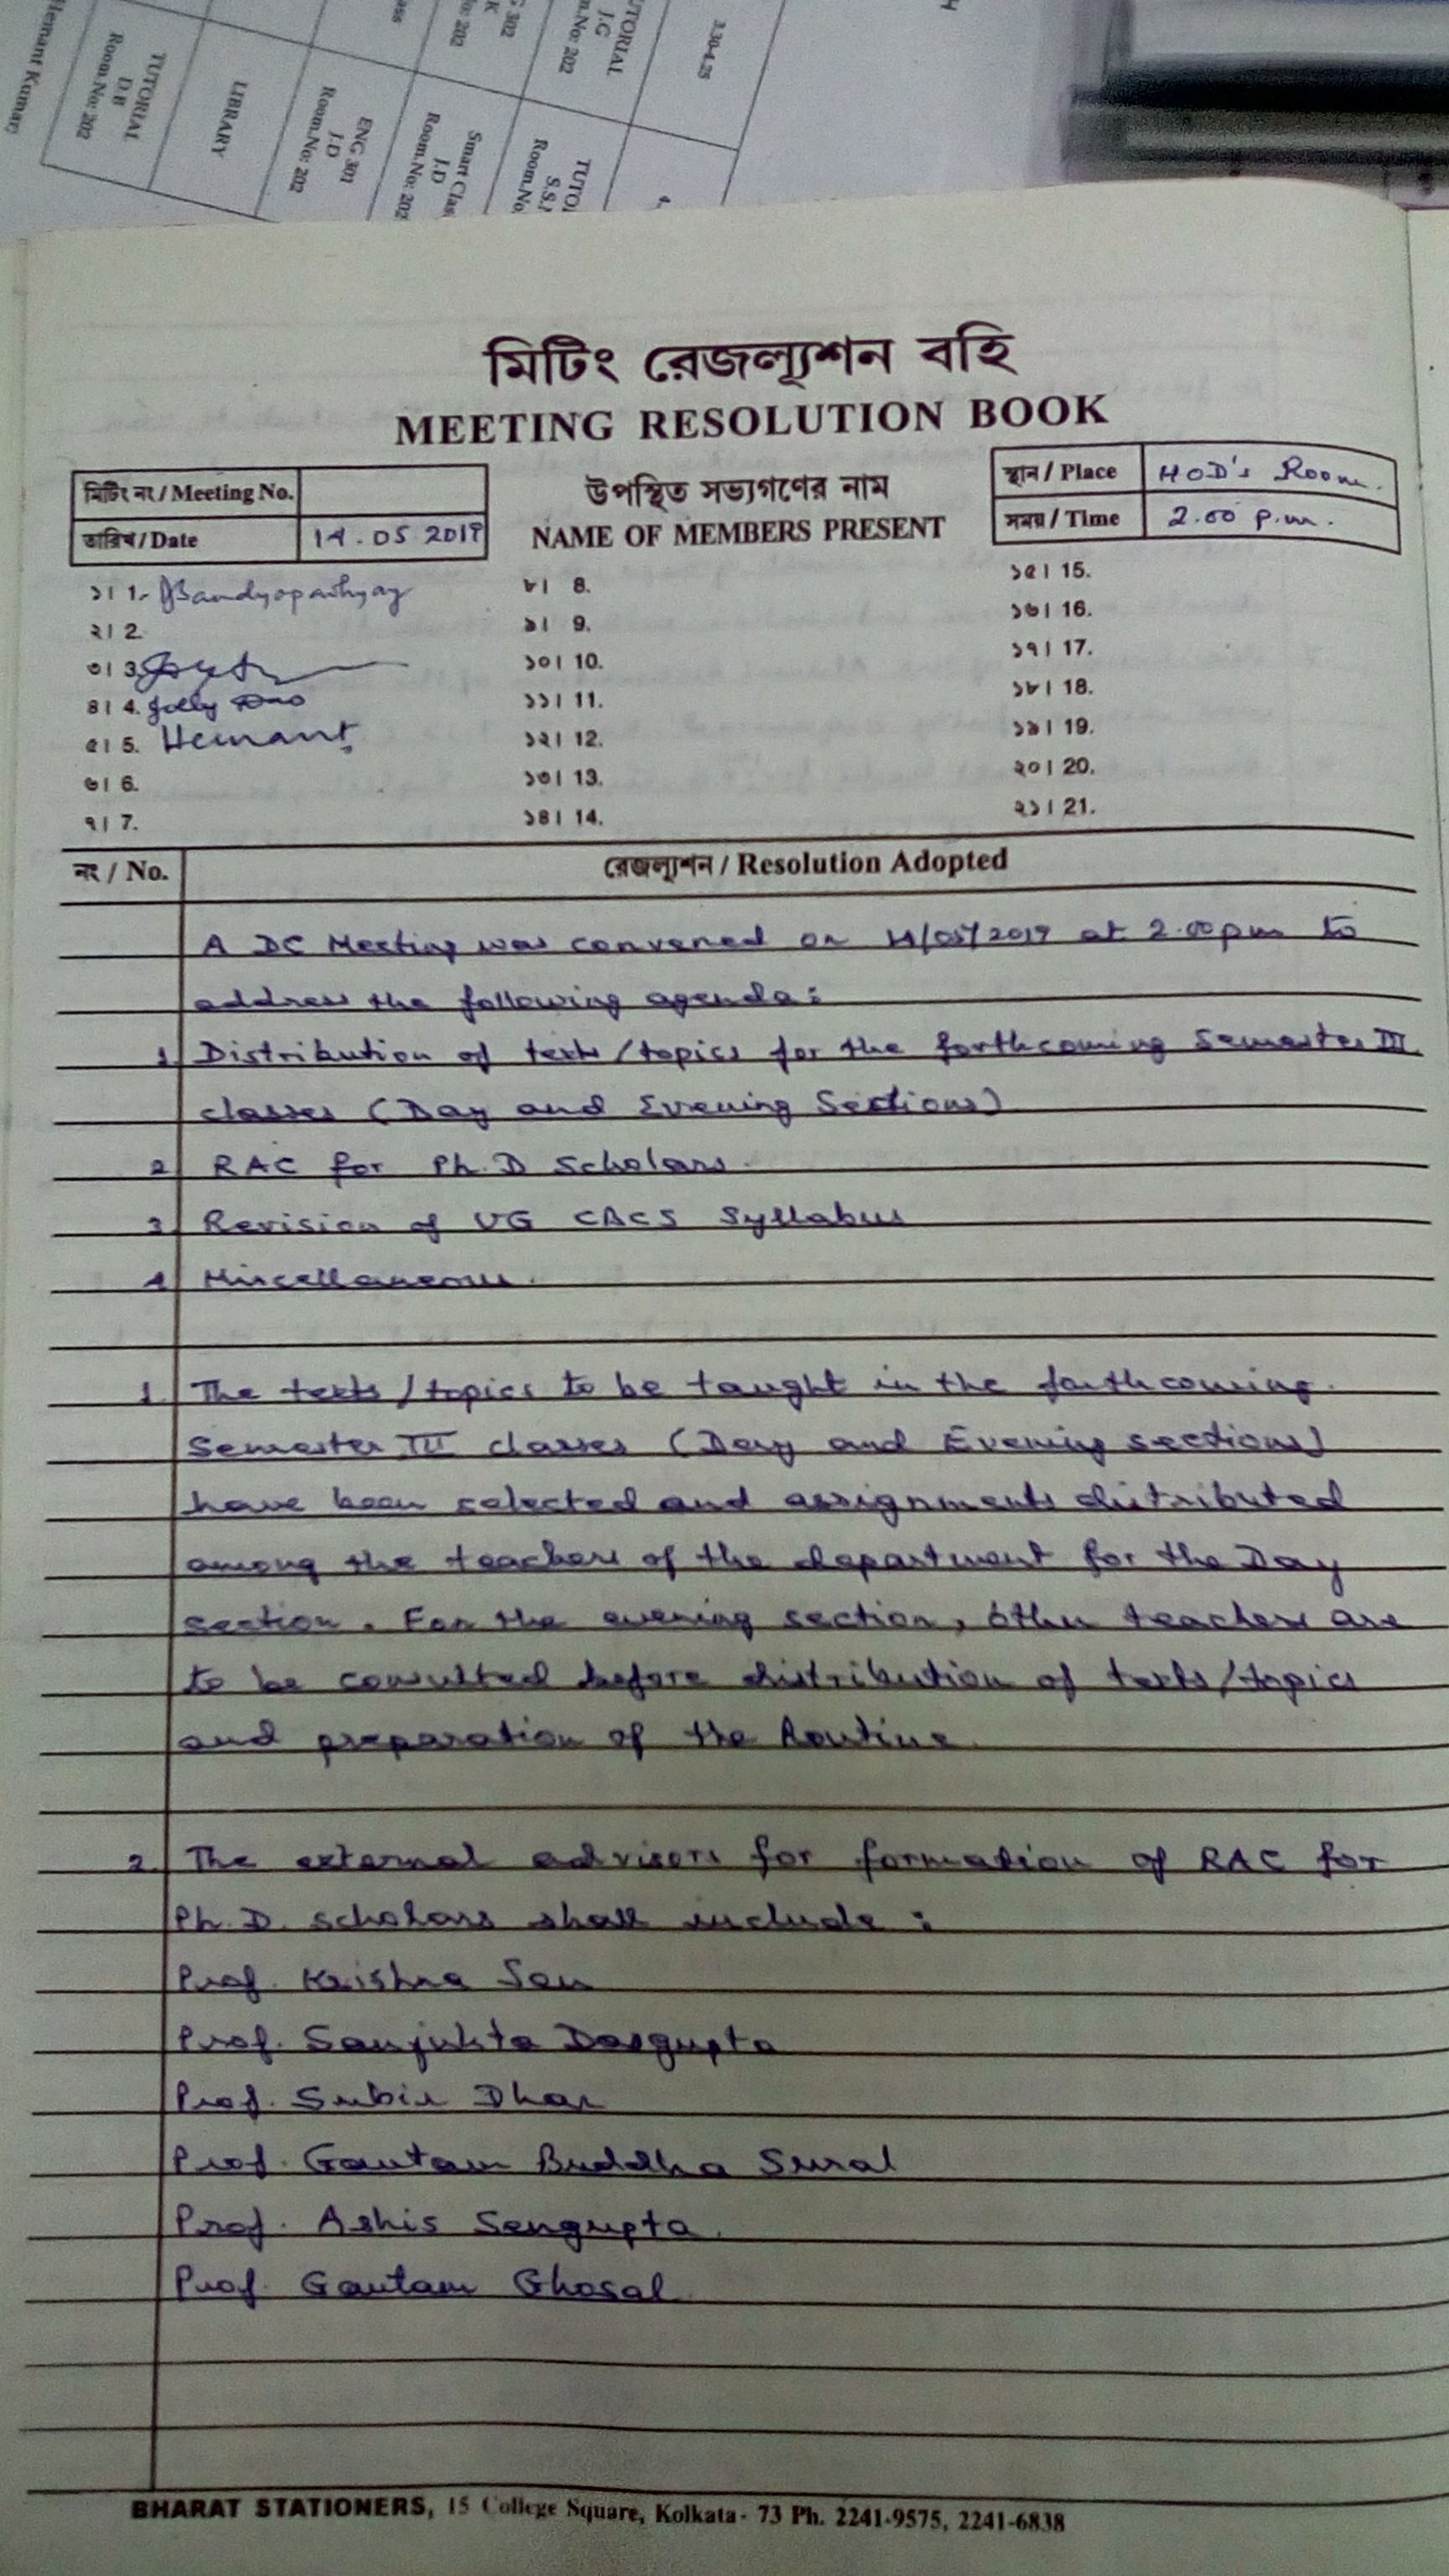 Hemant Kumar;
TUTORIAL
D.B
Room.No: 202
LIBRARY
ENG 301
J.D
Room.No: 202
Smart Clas
J.D
Room.No: 202
TUTO
Room.No:
TORIAL
J.G
m.No: 202
3.30-4.25
মিটিং রেজল্যুশন বহি
MEETING RESOLUTION BOOK
মিটিং নং / Meeting No.
তারিখ / Date 14.05.2019
উপস্থিত সভ্যগণের নাম
NAME OF MEMBERS PRESENT
স্থান / Place HOD's Room.
সময় / Time 2.00 p.m.
১। 1. Bandyopadhyay
২। 2.
৩। 3.
৪। 4. Jolly Das
৫। 5. Hemant
৬। 6.
৭। 7.
৮। 8.
৯। 9.
১০। 10.
১১। 11.
১২। 12.
১৩। 13.
১৪। 14.
১৫। 15.
১৬। 16.
১৭। 17.
১৮। 18.
১৯। 19.
২০। 20.
২১। 21.
নং / No. রেজল্যুশন / Resolution Adopted
A DC Meeting was convened on 14/05/2019 at 2.00pm to
address the following agenda:
1. Distribution of texts/topics for the forthcoming Semester III
classes (Day and Evening Sections)
2. RAC for Ph.D Scholars.
3. Revision of UG CBCS Syllabus
4. Miscellaneous.
1. The texts/topics to be taught in the forthcoming
Semester III classes (Day and Evening sections)
have been selected and assignments distributed
among the teachers of the department for the Day
section. For the evening section, other teachers are
to be consulted before distribution of texts/topics
and preparation of the Routine.
2. The external advisors for formation of RAC for
Ph.D. scholars shall include :
Prof. Krishna Sen
Prof. Sanjukta Dasgupta
Prof. Subir Dhar
Prof. Gautam Buddha Sural
Prof. Ashis Sengupta.
Prof. Gautam Ghosal.
BHARAT STATIONERS, 15 College Square, Kolkata- 73 Ph. 2241-9575, 2241-6838